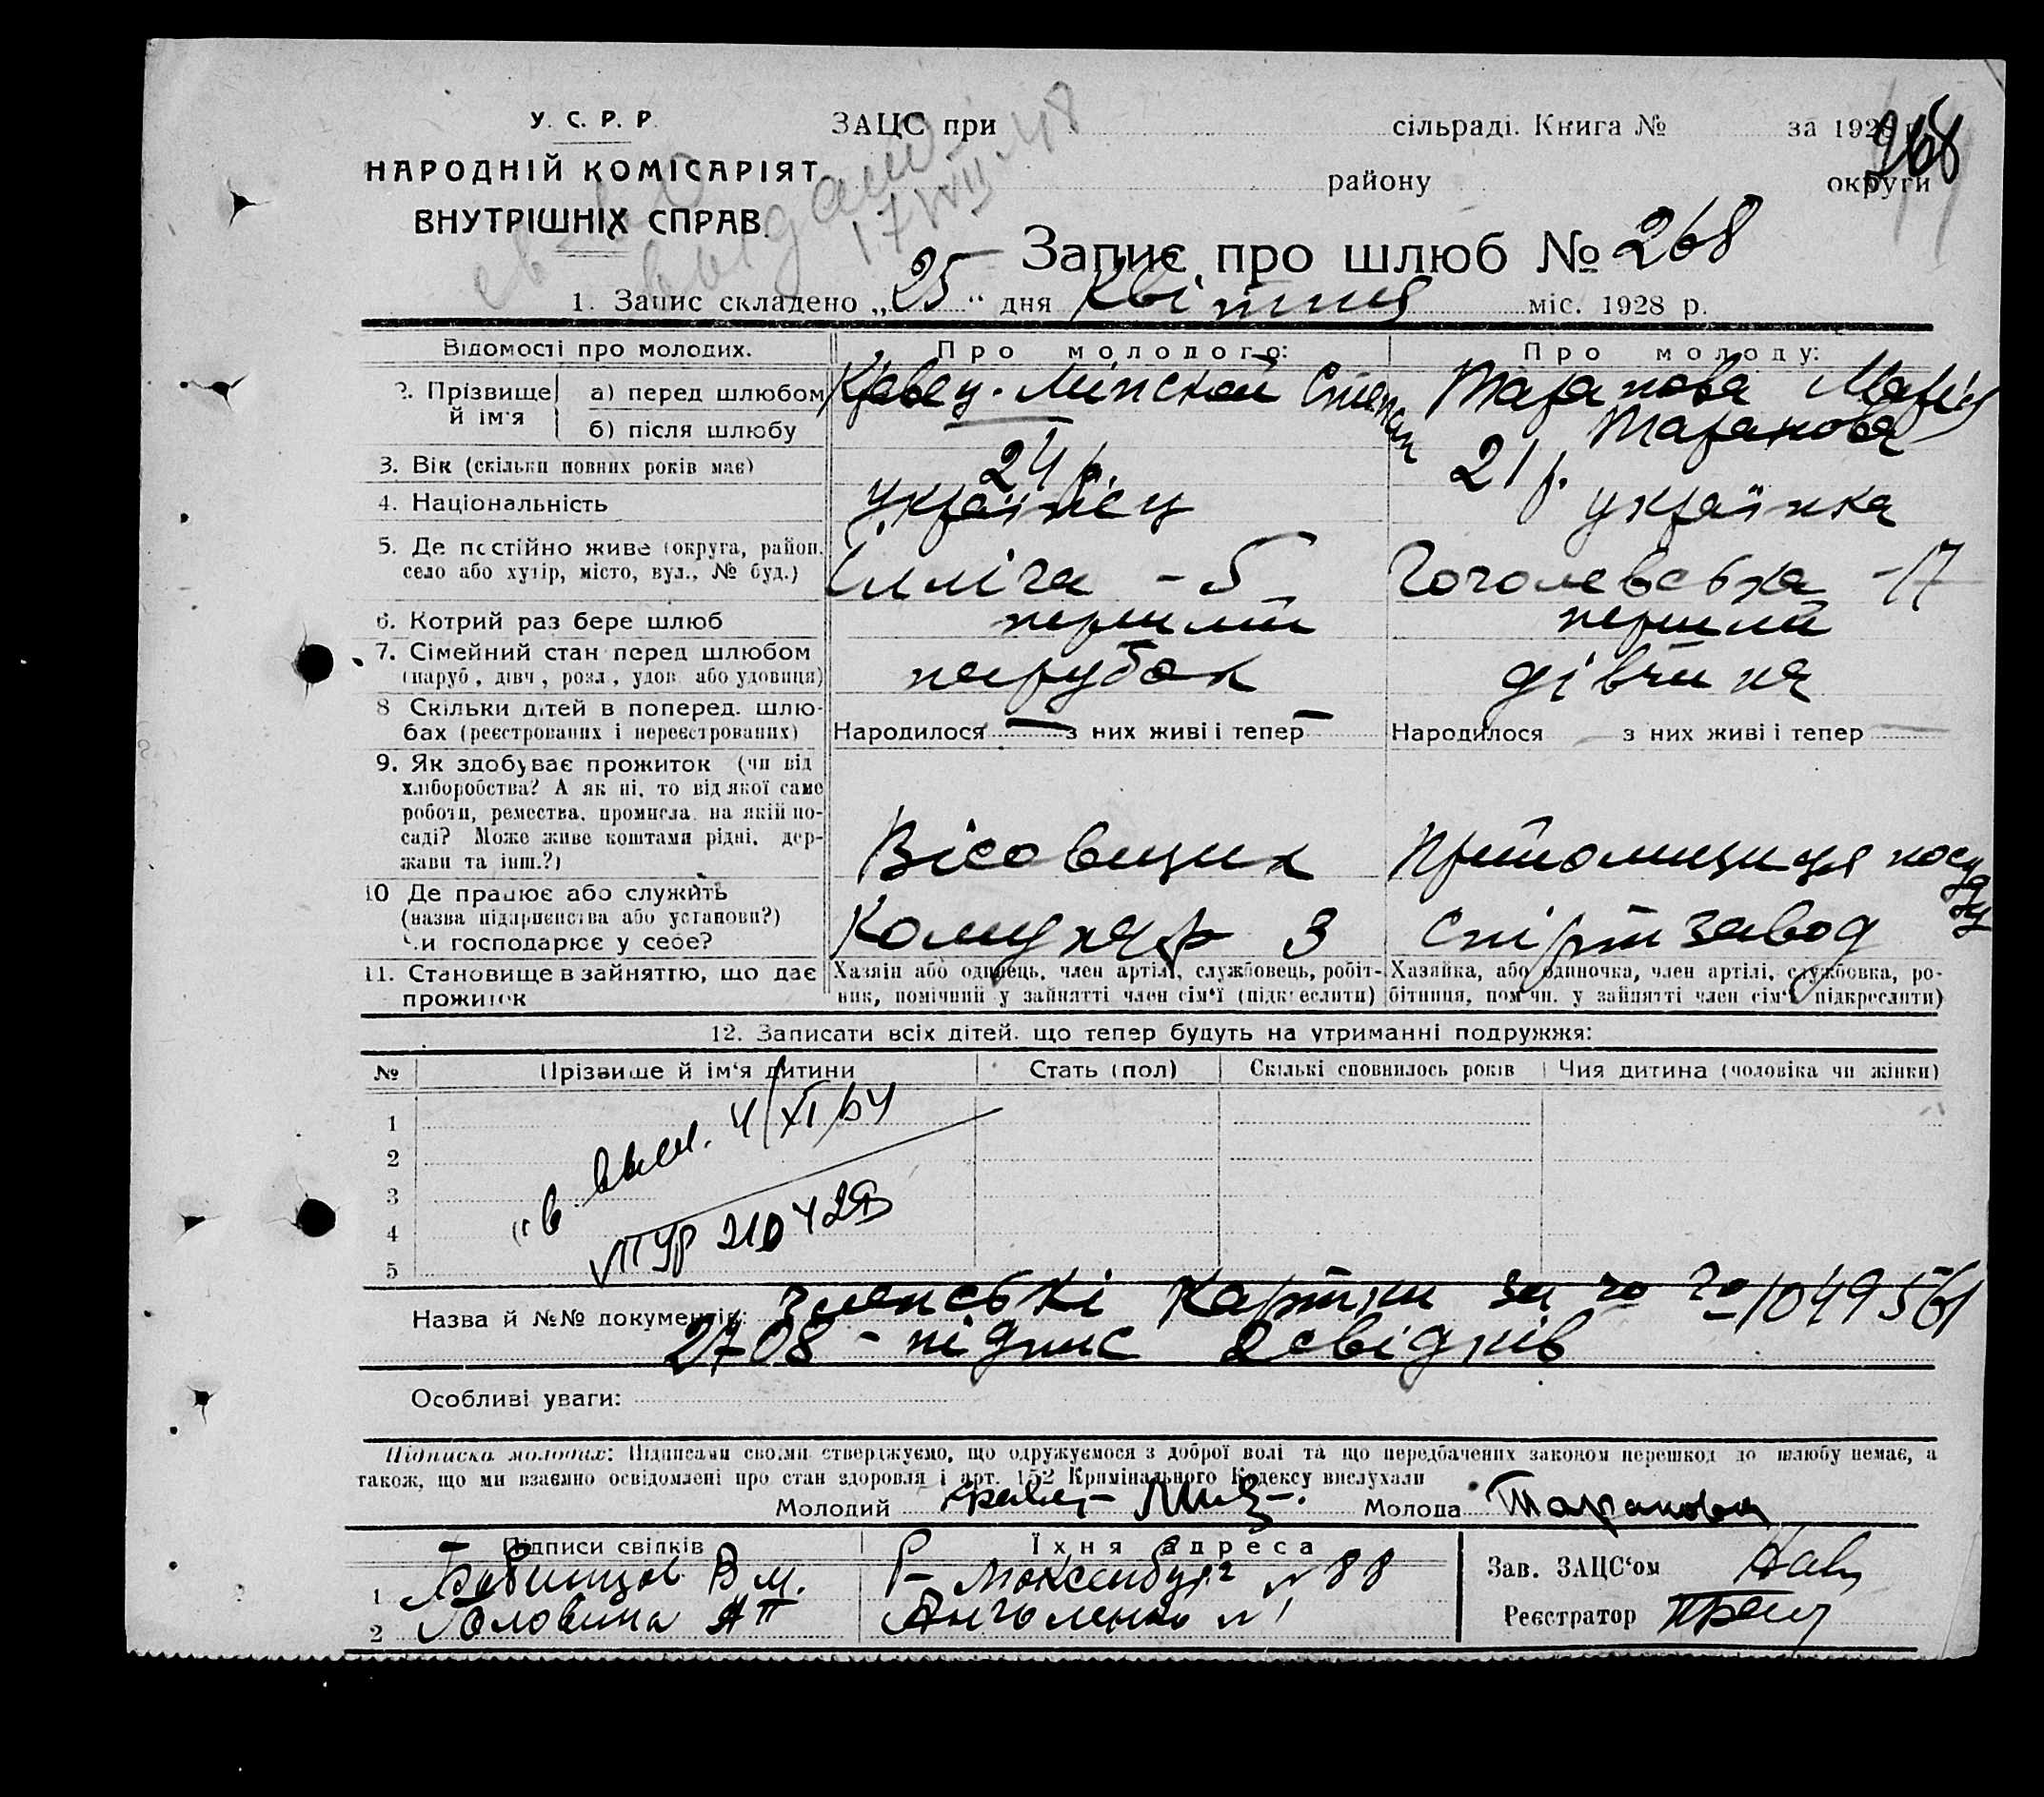 268
У. С. Р. Р.
НАРОДНІЙ КОМІСАРІЯТ
ВНУТРІШНІХ СПРАВ.
ЗАЦС при сільраді. Книга № за 1928 р.
району округи
Запис про шлюб № 268
1. Запис складено „25“ дня Квітня міс. 1928 р.
Відомості про молодих. Про молодого: Про молоду:
2. Прізвище й ім'я а) перед шлюбом Кравец-Мінской Степан Таранова Марія
б) після шлюбу Таранова
3. Вік (скільки повних років має) 24 р. 21 р.
4. Національність українец українка
5. Де постійно живе (округа, район, село або хутір, місто, вул., № буд.) Ілліча - 5 Гоголевська - 17
6. Котрий раз бере шлюб перший перший
7. Сімейний стан перед шлюбом парубок дівчина
(паруб., дівч., розл., удов. або удовиця)
8 Скільки дітей в поперед. шлюбах (реєстрованих і нереєстрованих) Народилося — з них живі і тепер — Народилося — з них живі і тепер —
9. Як здобуває прожиток (чи від
хліборобства? А як ні, то від якої саме
роботи, ремества, промисла, на якій посаді? Може живе коштами рідні, держави та інш.?) Вісовщик посуду
10 Де працює або служить
(назва підприємства або установи?)
Чи господарює у себе? Комунар 3 Спіртзавод
11. Становище в зайняттю, що дає прожиток
Хазяїн або одинець, член артілі, службовець, робітник, помічний у зайнятті член сім'ї (підкреслити)
Хазяйка, або одиночка, член артілі, службовка, робітниця, помічн. у зайнятті член сім'ї (підкреслити)
12. Записати всіх дітей, що тепер будуть на утриманні подружжя:
№ Прізвище й ім'я дитини Стать (пол) Скількі сповнилось років Чия дитина (чоловіка чи жінки)
1
2
3
4
5
4/XI/64
Назва й №№ документів: Членські картки за № № 1049561
2708 - підпис 2 свідків
Особливі уваги:
Підписка молодих: Підписами своїми стверджуємо, що одружуємося з доброї волі та що передбачених законом перешкод до шлюбу немає, а
також, що ми взаємно освідомлені про стан здоровля і арт. 152 Кримінального Кодексу вислухали
Молодий Кравец- Молода Таранова
Підписи свідків Їхня адреса
1 В М. № 88
2 Головина А П № 1
Зав. ЗАЦС'ом
Реєстратор